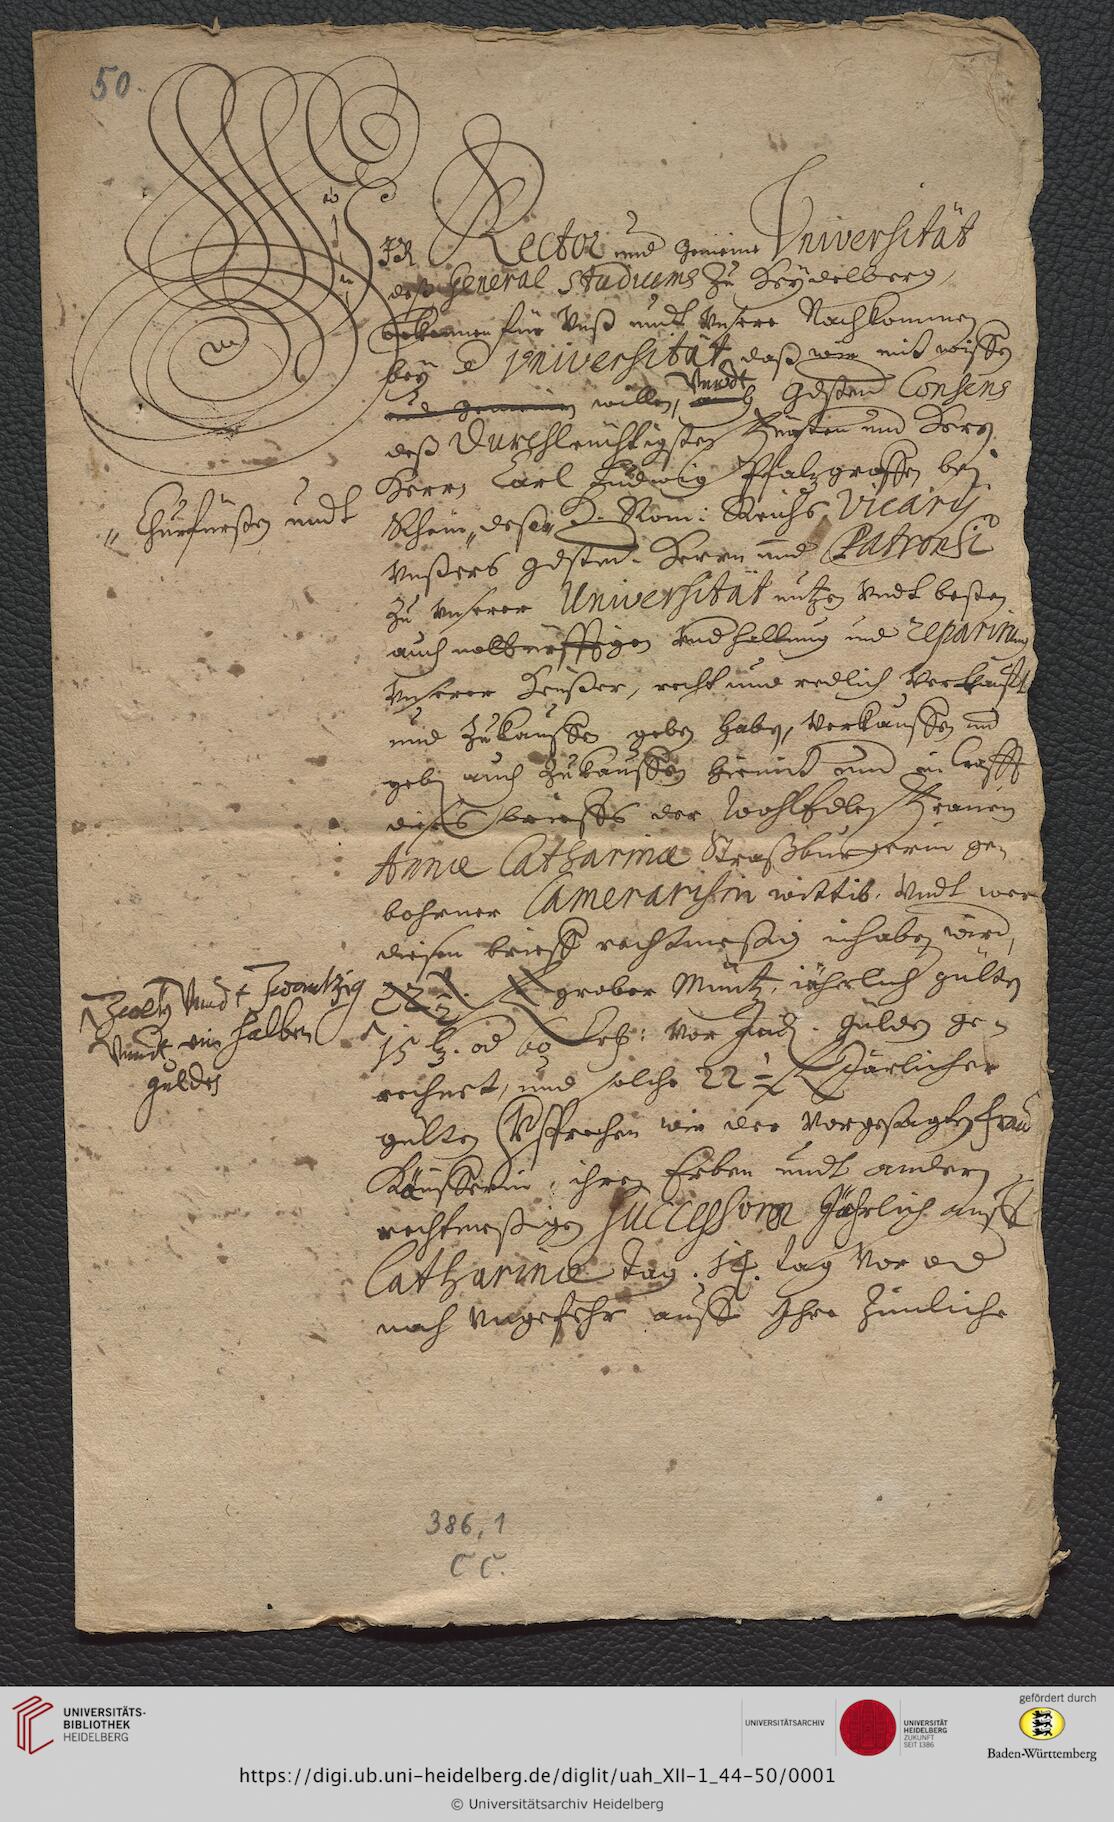 50.
WIR Rector und gemeine Universität
deß General Studiums zu Heÿdelberg,
bekennen für Unß undt Unsere Nachkommen
beÿ d Universität, daß wir mit wissen
und gemeinen willen, Undt auch gdsten Consens
deß Durchleuchtigsten Fürsten und Herrn
Herrn Carl Ludwig Pfalzgraffen beÿ
" Churfürsten undt
Rhein, " deß H. Röm: Reichs Vicarÿ
Unßers gdsten Herrn und Patronen
zu Unserer Universität nutzen Undt besten
auch Underhaltung und reparirung
Unserer Heußer, recht und redlich Verkaufft
und Zukauffen geben haben, Verkauffen und
geben auch Zukauffen hiemit und in Crafft
dießes brieffs der WohlEdlen Frauen
Annæ Catharinæ Straßburgerin ge-
bohrner Camerarisin wittib, Undt wer
diesen brieff rechtmeßig inhaben wird,
Zwey Undt Zwantzig
Undt ein halben
gulden
22 ½ fl. grober Müntz, jährlich gülten
15 bz. od 60 Crtz: Vor Jeden Gülden ge-
rechnet, und solche 22 ½ fl Järlicher
gülten Versprechen wir der Vorgesagten Frau
Käufferin, ihren Erben undt andern
rechtmeßigen Successoren Jährlich auff
Catharinæ tag, 14. tag Vor od
nach Ungefehr auff Ihre Zimliche
386, 1
C C.
UNIVERSITÄTS-
BIBLIOTHEK
HEIDELBERG
UNIVERSITÄTSARCHIV
UNIVERSITÄT
HEIDELBERG
ZUKUNFT
SEIT 1386
gefördert durch
Baden-Württemberg
https://digi.ub.uni-heidelberg.de/diglit/uah_XII-1_44-50/0001
© Universitätsarchiv Heidelberg